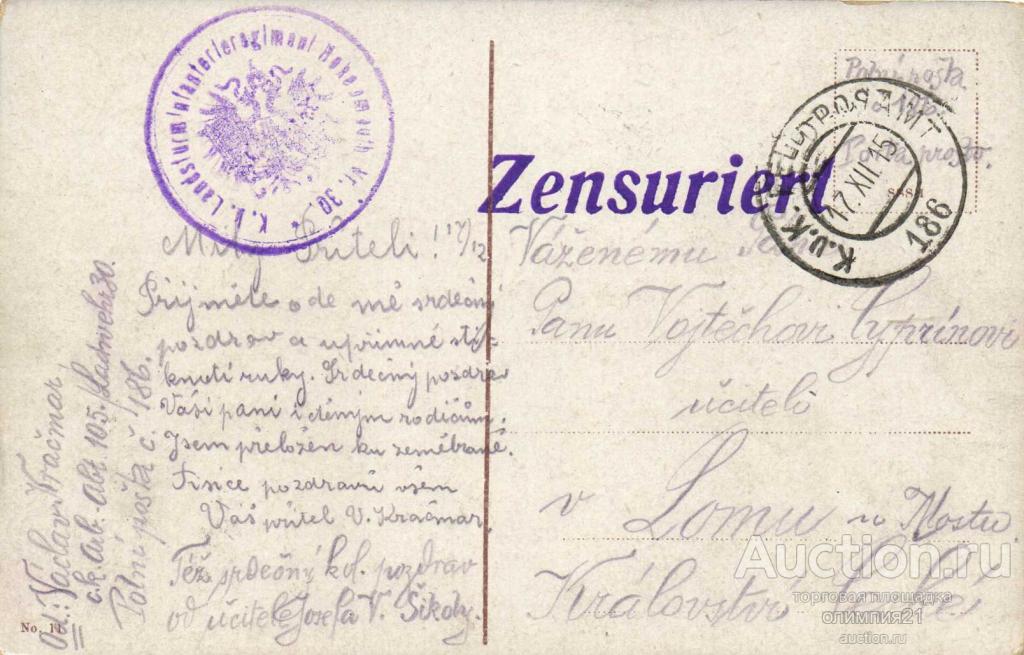 K.k. Landsturminfanterieregiment Hohenmauth Nr. 30.
Zensuriert
K.u.K. FELDPOSTAMT
17.XII.15
186
Polní pošta
Milý Příteli! 17/12
Přijměte ode mě srdečný
pozdrav a upřímné stis-
knutí ruky. Srdečný pozdrav
Vaší paní i děným rodičům.
Jsem přeložen ku zeměbraně.
Tisíce pozdravů všem
Váš přítel V. Kračmar.
Též srdečný kol. pozdrav
od učitele Josefa V. Šikoly.
Od.: Václav Kračmar
c.k. ab. abt 105./Landwehr 30.
Polní pošta č 186.
Váženému
Panu Vojtěchovi Cyprínovi
učiteli
v Lomu u Mostu
Království České
No. 11
Auction.ru
торговая площадка
олимпия21
auction.ru